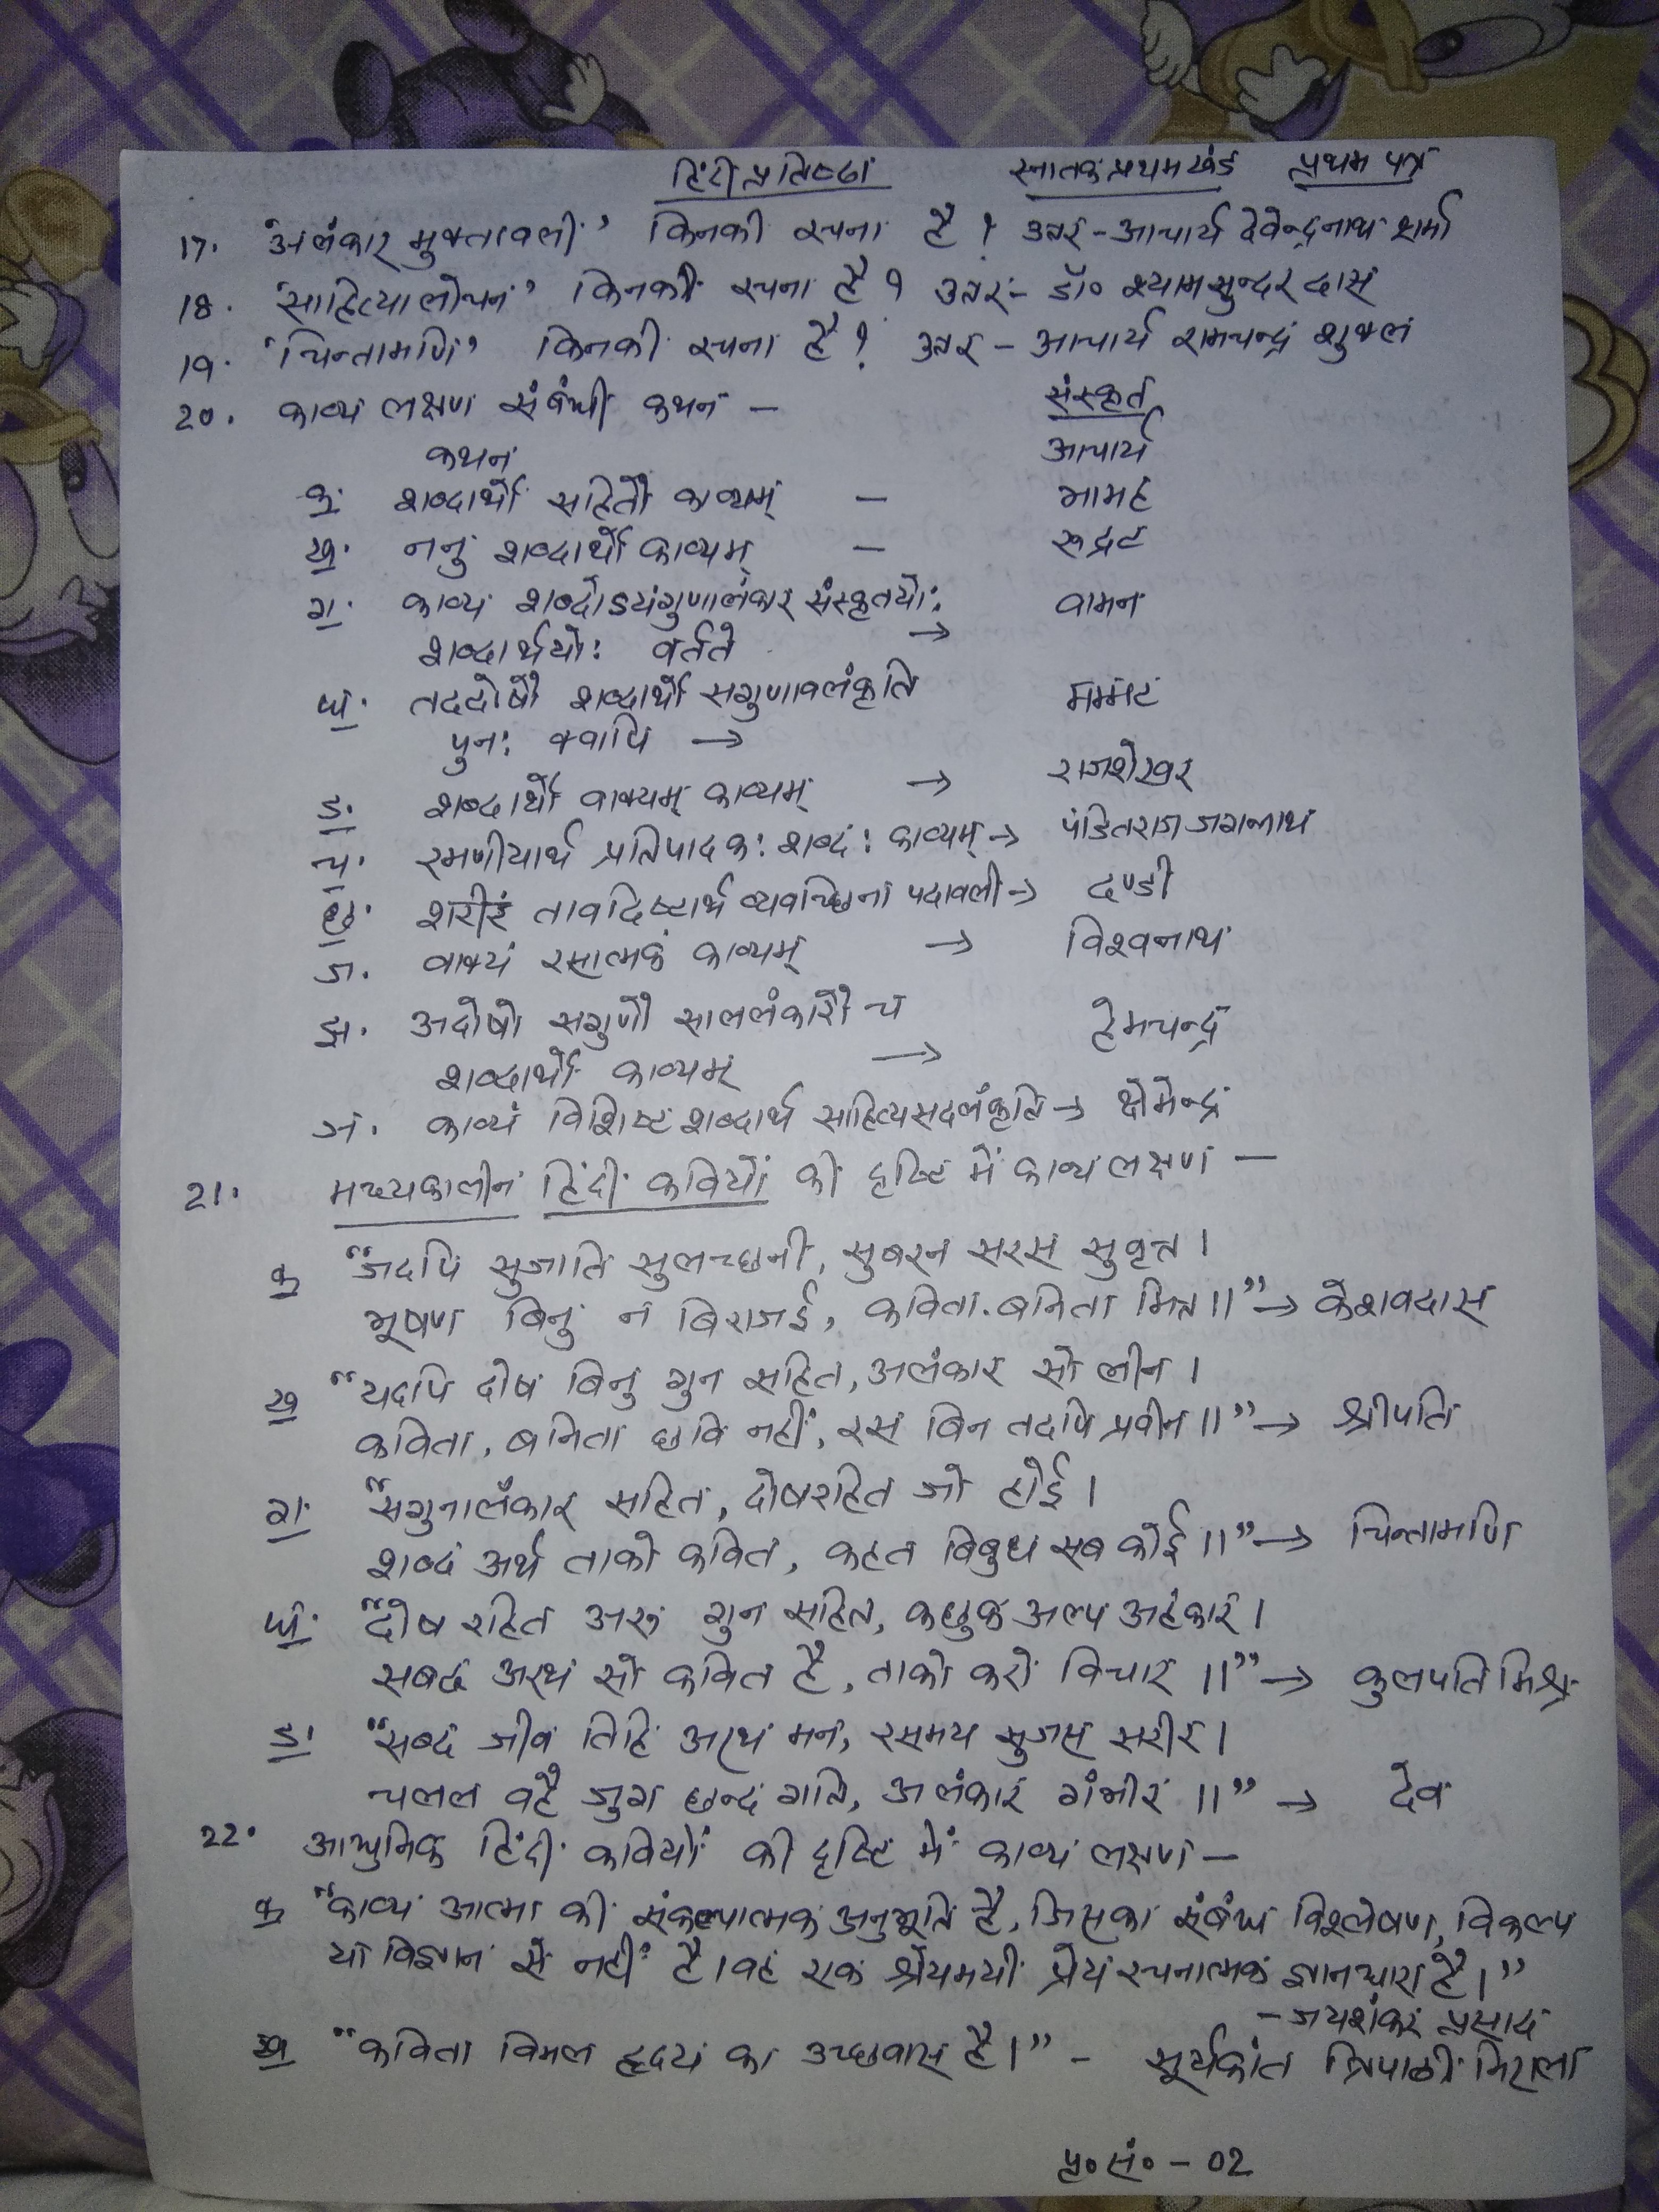 हिंदी प्रतिष्ठा स्नातक प्रथम खंड प्रथम पत्र
17. 'अलंकार मुक्तावली' किनकी रचना है? उत्तर - आचार्य देवेन्द्रनाथ शर्मा
18. 'साहित्यालोचन' किनकी रचना है? उत्तर - डॉ० श्यामसुन्दर दास
19. 'चिन्तामणि' किनकी रचना है? उत्तर - आचार्य रामचन्द्र शुक्ल
20. काव्य लक्षण संबंधी कथन — संस्कृत
कथन आचार्य
क. शब्दार्थौ सहितौ काव्यम् — भामह
ख. ननु शब्दार्थौ काव्यम् — रूद्रट
ग. काव्य शब्दोऽयंगुणालंकार संस्कृतयो: वामन
शब्दार्थयो: वर्तते →
घ. तददोषौ शब्दार्थौ सगुणावलंकृति मम्मट
पुन: क्वापि →
ङ. शब्दार्थौ वाक्यम् काव्यम् → राजशेखर
च. रमणीयार्थ प्रतिपादक: शब्द: काव्यम् → पंडितराज जगन्नाथ
छ. शरीरं तावदिष्टार्थ व्यवच्छिना पदावली → दण्डी
ज. वाक्यं रसात्मकं काव्यम् → विश्वनाथ
झ. अदोषौ सगुणौ साललंकारौ च हेमचन्द्र
शब्दार्थौ काव्यम् →
ञ. काव्यं विशिष्ट शब्दार्थ साहित्यसदलंकृति → क्षेमेन्द्र
21. मध्यकालीन हिंदी कवियों की दृष्टि में काव्य लक्षण —
क "जदपि सुजाति सुलच्छनी, सुबरन सरस सुवृत्त।
भूषण बिनु न बिराजई, कविता. बनिता मित्त।।" → केशवदास
ख "यदपि दोष बिनु गुन सहित, अलंकार सो लीन।
कविता, बनिता छवि नहीं, रस बिन तदपि प्रवीन।।" → श्रीपति
ग. "सगुनालंकार सहित, दोषरहित जो होई।
शब्द अर्थ ताको कवित, कहत बिबुध सब कोई।।" → चिन्तामणि
घ. "दोष रहित अरु गुन सहित, कछुक अल्प अहंकार।
सबद अरथ सो कवित है, ताको करो विचार।।" → कुलपति मिश्र
ङ. "सब्द जीव तिहि अरथ मन, रसमय सुजस सरीर।
चलल वहै जुग छन्द गति, अलंकार गंभीर।।" → देव
22. आधुनिक हिंदी कवियों की दृष्टि में काव्य लक्षण —
क "काव्य आत्मा की संकल्पात्मक अनुभूति है, जिसका संबंध विश्लेषण, विकल्प
या विज्ञान से नहीं है। वह एक श्रेयमयी प्रेय रचनात्मक ज्ञानधारा है।"
- जयशंकर प्रसाद
ख "कविता विमल हृदय का उच्छवास है।" - सूर्यकांत त्रिपाठी निराला
पृ० सं० - 02